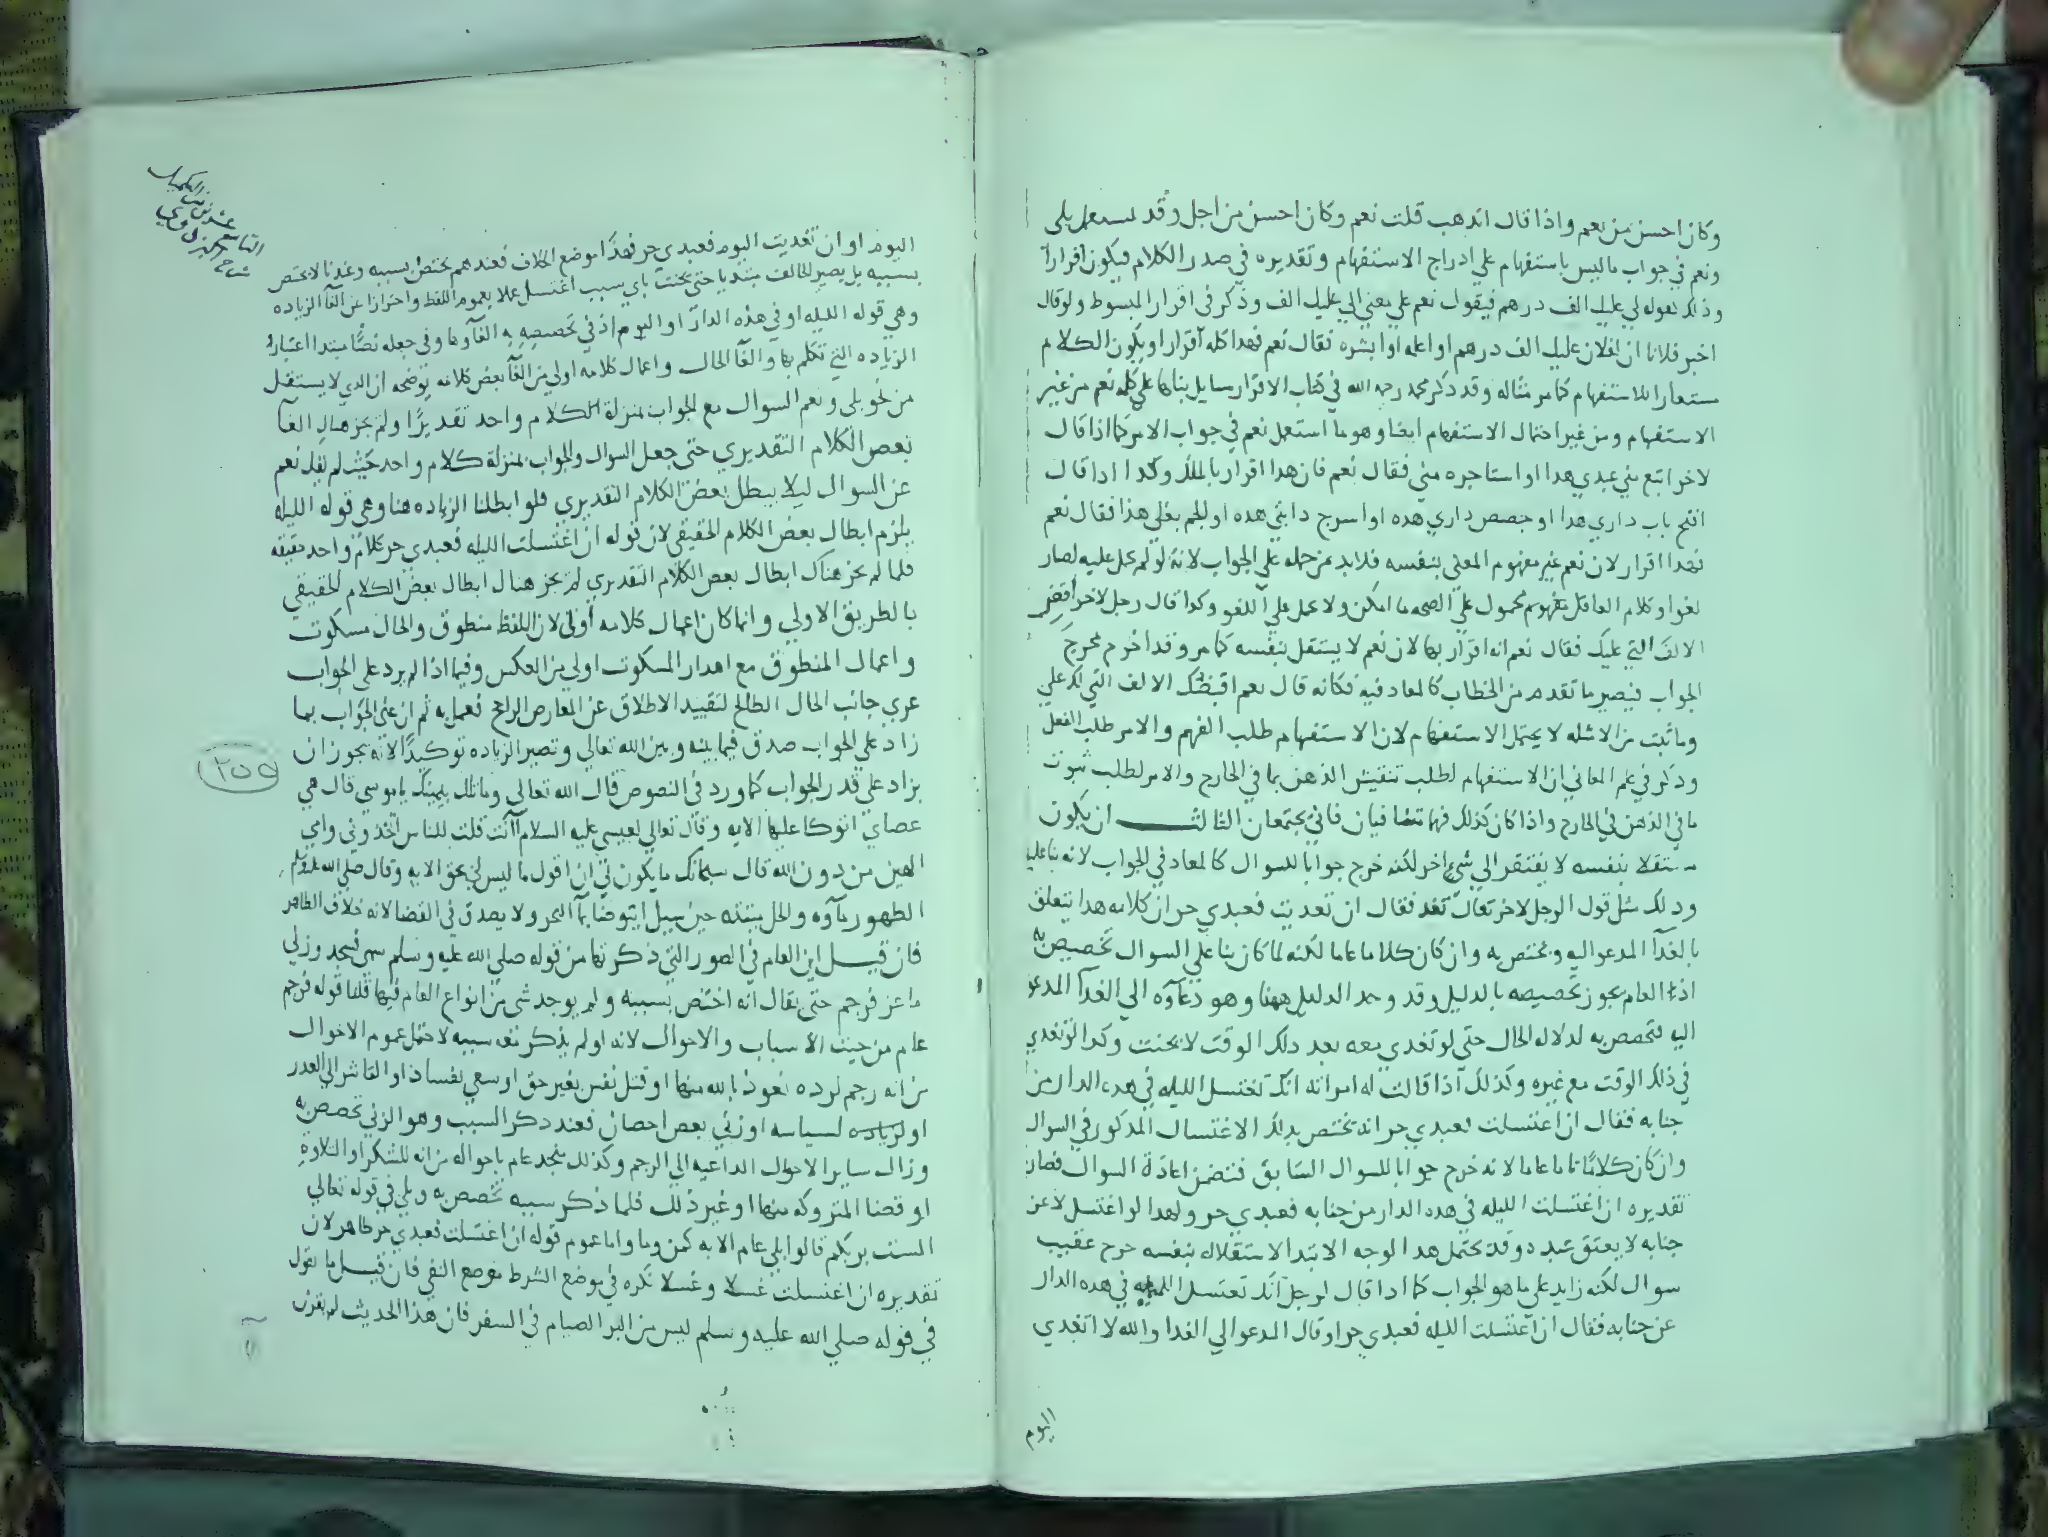 وكان احسن من نعم واذا قال اتذهب قلت نعم وكان احسن من اجل وقد يستعمل بلى
ونعم في جواب ما ليس باستفهام علي ادراج الاستفهام وتقديره في صدر الكلام فيكون اقرارا
وذلك نقوله لي عليك الف درهم فيقول نعم علي معني الي عليك الف وذكر في اقرار المبسوط ولو قال
اخبر فلانا ان لفلان عليك الف درهم او اعلمه او ابشره فقال نعم فهذا كله اقرار او يكون الكلام
مستعارا للاستفهام كما مر مثاله وقد ذكر محمد رحمه الله في كتاب الاقرار مسايل بناها علي كلمه نعم من غير
الاستفهام ومن غير احتمال الاستفهام ايضا وهو ما استعمل نعم في جواب الامر كما اذا قال
لاخر ابتع مني عبدي هذا او استاجره مني فقال نعم فان هذا اقرار بالملك وكذا اذا قال
افتح باب داري هذا او جصص داري هذه او اسرج دابتي هذه او الجم بغلي هذا فقال نعم
فهذا اقرار لان نعم غير مفهوم المعني بنفسه فلا بد من حمله علي الجواب لانه لو لم يحمل عليه لصار
لغوا وكلام العاقل محمول علي الصحه ما امكن ولا يحمل علي اللغو وكذا قال رجل لاخر اقضني
الالف التي عليك فقال نعم انه اقرار بها لان نعم لا يستقل بنفسه كما مر وقد اخرج مخرج
الجواب فيصير ما تقدم من الخطاب كالمعاد فيه فكانه قال نعم اقبضك الالف التي لك علي
وما ثبت من الامثله لا يحتمل الاستفهام لان الاستفهام طلب الفهم والامر طلب الفعل
وذكر في علم المعاني ان الاستفهام لطلب تنقيش الذهن بما في الخارج والامر لطلب ثبوت
ما في الذهن في الخارج واذا كان كذلك فهما متنافيان فاني يجتمعان الثالث ان يكون
مستقلا بنفسه لا يفتقر الي شي اخر لكنه خرج جوابا للسوال كالمعاد في الجواب لانه بنا عليه
وذلك مثل قول الرجل لاخر تعال تغد فقال ان تغديت فعبدي حر ان كلامه هذا يتعلق
بالغدآ المدعو اليه ويختص به وان كان كلاما عاما لكنه لما كان بنا علي السوال تخصيص به
اذ العام يجوز تخصيصه بالدليل وقد وجد الدليل ههنا وهو دعاوه الي الغدآ المدعو
اليه فتخصص به لدلاله الحال حتي لو تغدي معه بعد ذلك الوقت لا يحنث وكذا لو تغدي
في ذلك الوقت مع غيره وكذلك اذا قالت له امراته انك تغتسل الليله في هذه الدار من
جنابه فقال ان اغتسلت فعبدي حر انه يختص بذلك الاغتسال المذكور في السوال
وان كان كلاما تاما عاما لانه خرج جوابا للسوال السابق فتضمن اعادة السوال فصار
تقديره ان اغتسلت الليله في هذه الدار من جنابه فعبدي حر ولهذا لو اغتسل لا عن
جنابه لا يعتق عبده وقد يحتمل هذا الوجه الابتدا لاستقلاله بنفسه خرج عقيب
سوال لكنه زايد علي ما هو الجواب كما اذا قال لرجل انك تغتسل الليله في هذه الدار
عن جنابه فقال ان اغتسلت الليله فعبدي حر او قال المدعو الي الغدا والله لا اتغدي
اليوم
اليوم او ان تغديت اليوم فعبدي حر فهذا موضع الخلاف فعندهم يختص بسببه وعندنا لا يختص
بسببه بل يصير الحالف مبتديا حتي يحنث باي سبب اغتسل عملا بعموم اللفظ واحترازا عن الغآ الزياده
وهي قوله الليله او في هذه الدار او اليوم اذ في تخصيصه به الغآوها وفي جعله نصا مبتدا اعتبار
الزياده التي تكلم بها والغآ الحال واعمال كلامه اولي من الغآ بعض كلامه يوضحه ان الذي لا يستقل
من نحو بلي ونعم السوال مع الجواب بمنزلة الكلام واحد تقديرا ولم يجز هناك الغا
بعض الكلام التقديري حتي جعل السوال والجواب بمنزلة كلام واحد حيث لم يقل نعم
عن السوال ليلا يبطل بعض الكلام التقديري فلو ابطلنا الزياده هنا وهي قوله الليله
يلزم ابطال بعض الكلام الحقيقي لان قوله ان اغتسلت الليله فعبدي حر كلام واحد حقيقه
فلما لم يجز هناك ابطال بعض الكلام التقديري لم يجز هنا ابطال بعض الكلام الحقيقي
بالطريق الاولي وانما كان اعمال كلامه اولي لان اللفظ منطوق والحال مسكوت
واعمال المنطوق مع اهدار المسكوت اولي من العكس وفيما اذا لم يرد علي الجواب
عري جانب الحال الصالح لتقييد الاطلاق عن المعارض الراجح فعمل به ثم ان عني الجواب بما
زاد علي الجواب صدق فيما بينه وبين الله تعالي وتصير الزياده توكيدا لانه يجوز ان
يزاد علي قدر الجواب كما ورد في النصوص قال الله تعالي وما تلك بيمينك يا موسي قال هي
عصاي اتوكا عليها الايه وقال تعالي لعيسي عليه السلام أانت قلت للناس اتخذوني وامي
الهين من دون الله قال سبحانك ما يكون لي ان اقول ما ليس لي بحق الايه وقال صلي الله عليه وسلم
الطهور مآوه والحل ميتته حين سيل ايتوضا بمآ البحر ولا يصدق في القضا لانه خلاف الظاهر
فان قيل اين العام في الصور التي ذكرتها من قوله صلي الله عليه وسلم سهي فسجد وزني
ماعز فرجم حتي يقال انه اختص بسببه ولم يوجد شي من انواع العام فيها قلنا قوله فرجم
عام من حيث الاسباب والاحوال لانه لو لم يذكر معه سببه لاحتمل عموم الاحوال
من انه رجم لرده نعوذ بالله منها او قتل نفس بغير حق او سعي بفساد
او لزياده لسياسه او زني بعض احصان فعند ذكر السبب وهو الزني تخصص به
وزال ساير الاحوال الداعيه الي الرجم وكذلك سجد عام باحواله من انه للشكر او التلاوة
او قضا المتروكه منها او غير ذلك فلما ذكر سببه تخصص به وبلي في قوله تعالي
الست بربكم قالوا بلي عام الابه كمن وما واما عموم قوله ان اغتسلت فعبدي حر ظاهر لان
تقديره ان اغتسلت غسلا وغسلا نكره في موضع الشرط موضع النفي فان قيل ما تقول
في قوله صلي الله عليه وسلم ليس من البر الصيام في السفر فان هذا الحديث لم
٢٥٥